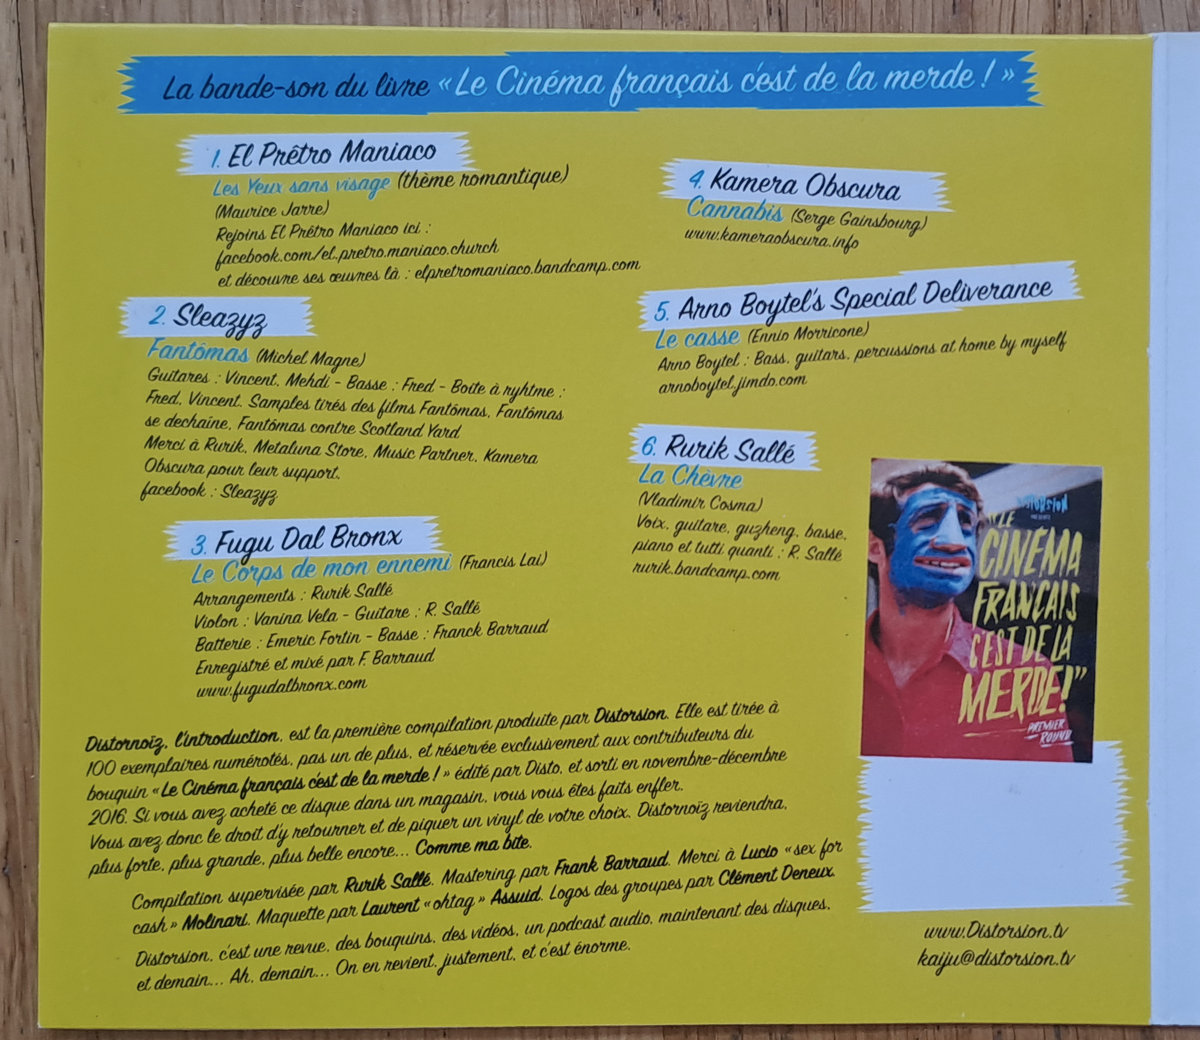 La bande-son du livre « Le Cinéma français c'est de la merde ! »
1. El Prêtro Maniaco
Les Yeux sans visage (thème romantique)
(Maurice Jarre)
Rejoins El Prêtro Maniaco ici :
facebook.com/el.pretro.maniaco.church
et découvre ses œuvres là : elpretromaniaco.bandcamp.com
2. Sleazyz
Fantômas (Michel Magne)
Guitares : Vincent, Mehdi - Basse : Fred - Boite à ryhtme :
Fred, Vincent. Samples tirés des films Fantômas, Fantômas
se dechaîne, Fantômas contre Scotland Yard
Merci à Rurik, Metaluna Store, Music Partner, Kamera
Obscura pour leur support.
facebook : Sleazyz
3. Fugu Dal Bronx
Le Corps de mon ennemi (Francis Lai)
Arrangements : Rurik Sallé
Violon : Vanina Vela - Guitare : R. Sallé
Batterie : Emeric Fortin - Basse : Franck Barraud
Enregistré et mixé par F. Barraud
www.fugudalbronx.com
4. Kamera Obscura
Cannabis (Serge Gainsbourg)
www.kameraobscura.info
5. Arno Boytel's Special Deliverance
Le casse (Ennio Morricone)
Arno Boytel : Bass, guitars, percussions at home by myself
arnoboytel.jimdo.com
6. Rurik Sallé
La Chèvre
(Vladimir Cosma)
Voix, guitare, guzheng, basse,
piano et tutti quanti : R. Sallé
rurik.bandcamp.com
DISTORSION
PRÉSENTE
"LE
CINÉMA
FRANÇAIS
C'EST DE LA
MERDE!"
PREMIER
ROUND
Distornoïz, l'introduction, est la première compilation produite par Distorsion. Elle est tirée à
100 exemplaires numérotés, pas un de plus, et réservée exclusivement aux contributeurs du
bouquin « Le Cinéma français c'est de la merde ! » édité par Disto, et sorti en novembre-décembre
2016. Si vous avez acheté ce disque dans un magasin, vous vous êtes faits enfler.
Vous avez donc le droit d'y retourner et de piquer un vinyl de votre choix. Distornoïz reviendra,
plus forte, plus grande, plus belle encore... Comme ma bite.
Compilation supervisée par Rurik Sallé. Mastering par Frank Barraud. Merci à Lucio « sex for
cash » Molinari. Maquette par Laurent « ohtag » Assuid. Logos des groupes par Clément Deneux.
Distorsion, c'est une revue, des bouquins, des vidéos, un podcast audio, maintenant des disques,
et demain... Ah, demain... On en revient, justement, et c'est énorme.
www.Distorsion.tv
kaiju@distorsion.tv